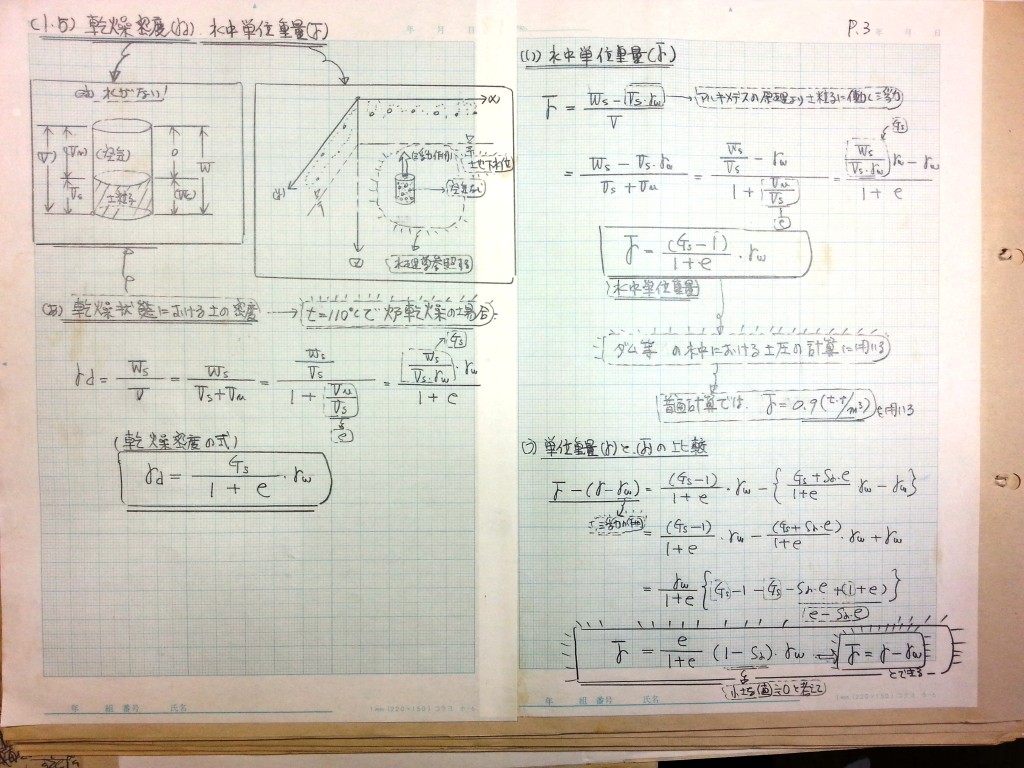 (1.5) 乾燥密度(γd) 水中単位重量(γ̄)
P.3
年 月 日
水がない!
(V) (Vm) Vs (空気) 土粒子 0 (Ws) W
x
y
z
浮力作用
地下水位
空気なし
(あ) 乾燥状態における土の密度 → t=110℃で炉乾燥の土場合
γd = Ws/V = Ws/(Vs+Vm) = (Ws/Vs)/(1+Vm/Vs) = (Ws/(Vs·γw))·γw/(1+e)
Gs
e
(乾燥密度の式)
γd = Gs/(1+e)·γw
(い) 水中単位重量(γ̄)
γ̄ = (Ws-(Vs·γw))/V → アルキメデスの原理より土粒子に働く浮力
= (Ws-Vs·γw)/(Vs+Vm) = (Ws/Vs-γw)/(1+Vm/Vs) = ((Ws/(Vs·γw))γw-γw)/(1+e)
Gs
e
γ̄ = (Gs-1)/(1+e)·γw
水中単位重量
ダム等の水中における土圧の計算に用いる
普通計算では、γ̄=0.9(t·f/m³)を用いる
(う) 単位重量(γ)と(γ̄)の比較
γ̄-(γ-γw) = (Gs-1)/(1+e)·γw-{(Gs+Sr·e)/(1+e) γw-γw}
浮力作用
= (Gs-1)/(1+e)·γw-(Gs+Sr·e)/(1+e)·γw+γw
= γw/(1+e){Gs-1-Gs-Sr·e+(1+e)}
e-Sr·e
γ̄ = e/(1+e)(1-Sr)·γw → γ̄=γ-γw
とできる
小さい値≒0と考えて
年 組 番号 氏名
年 組 番号 氏名